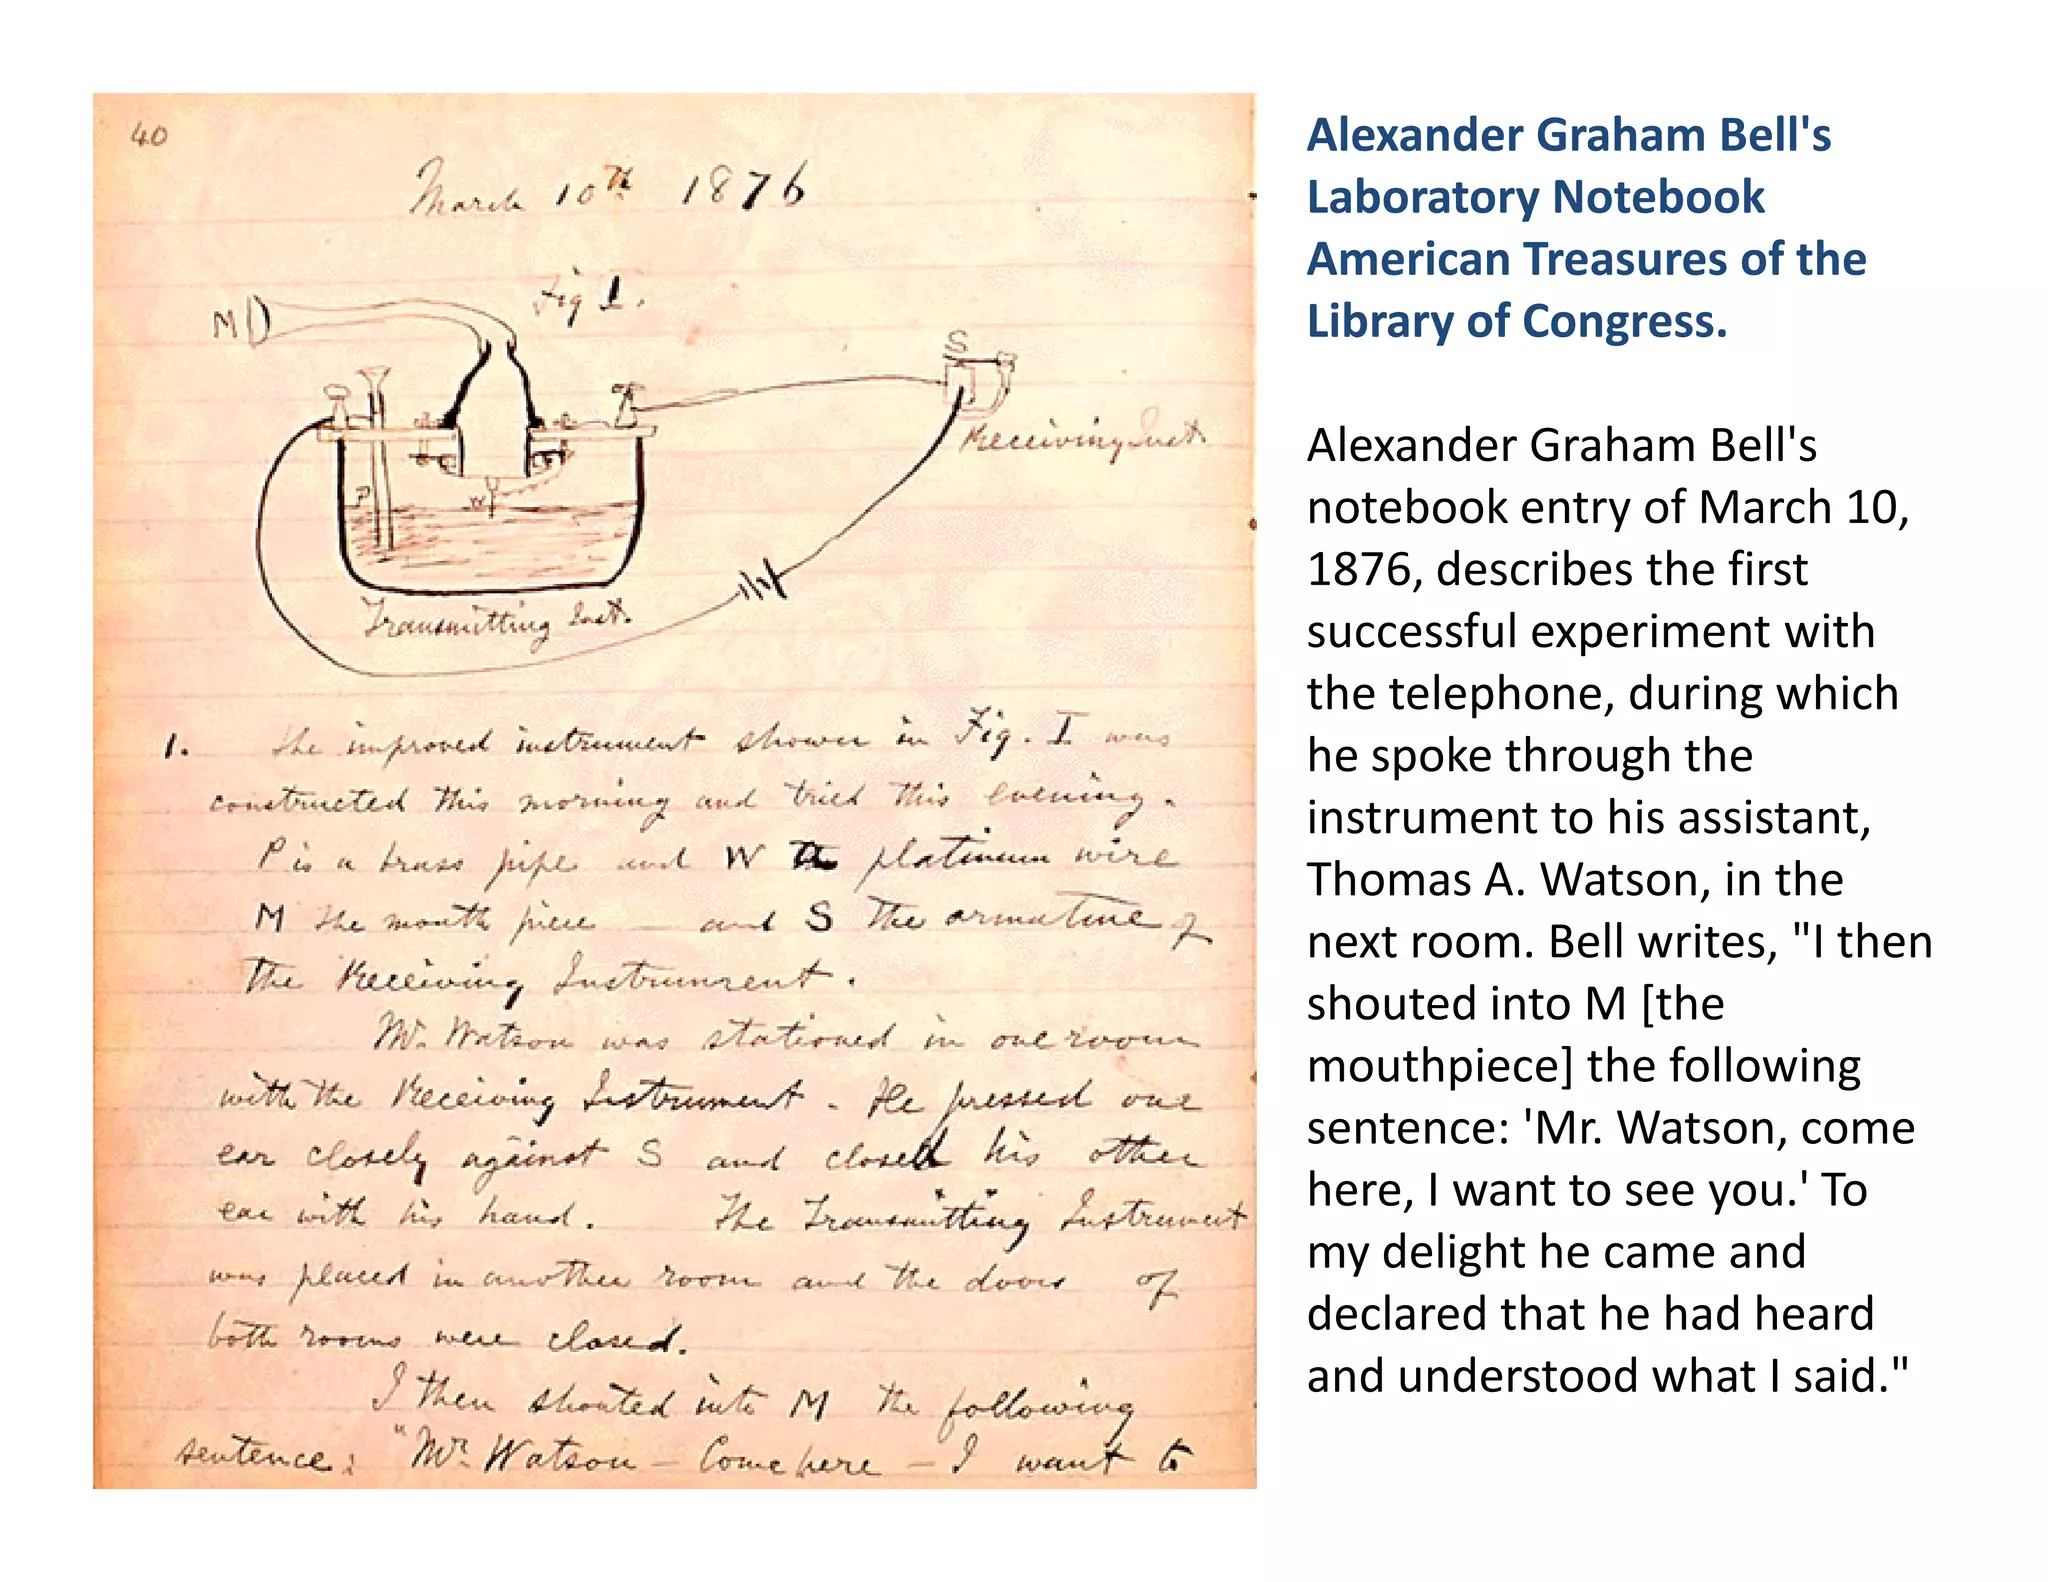 40
March 10th 1876
Fig 1.
M
S
Receiving Inst.
P
W
Transmitting Inst.
1. The improved instrument shown in Fig. I was
constructed this morning and tried this evening.
P is a brass pipe and W the platinum wire
M the mouth piece – and S the armature of
the Receiving Instrument.
Mr. Watson was stationed in one room
with the Receiving Instrument. He pressed one
ear closely against S and closed his other
ear with his hand. The Transmitting Instrument
was placed in another room and the doors of
both rooms were closed.
I then shouted into M the following
sentence: "Mr. Watson – Come here – I want to
Alexander Graham Bell's
Laboratory Notebook
American Treasures of the
Library of Congress.
Alexander Graham Bell's
notebook entry of March 10,
1876, describes the first
successful experiment with
the telephone, during which
he spoke through the
instrument to his assistant,
Thomas A. Watson, in the
next room. Bell writes, "I then
shouted into M [the
mouthpiece] the following
sentence: 'Mr. Watson, come
here, I want to see you.' To
my delight he came and
declared that he had heard
and understood what I said."